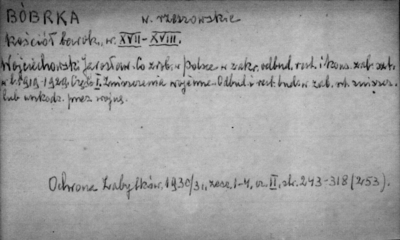 BÓBRKA w. rzeszowskie
Kościół barok. w. XVII-XVIII.
Wojciechowski Jarosław. Co zrob. w Polsce w zakr. odbud. rest. i kons. zab. szt.
w l. 1919-1929. Część I. Zniszczenia wojenne. Odbud. i rest. bud. w zab. zniszcz.
lub uszkodz. przez wojnę.
Ochrona Zabytków, 1930/31, zesz. 1-4, cz. II, str. 243-318 (253).